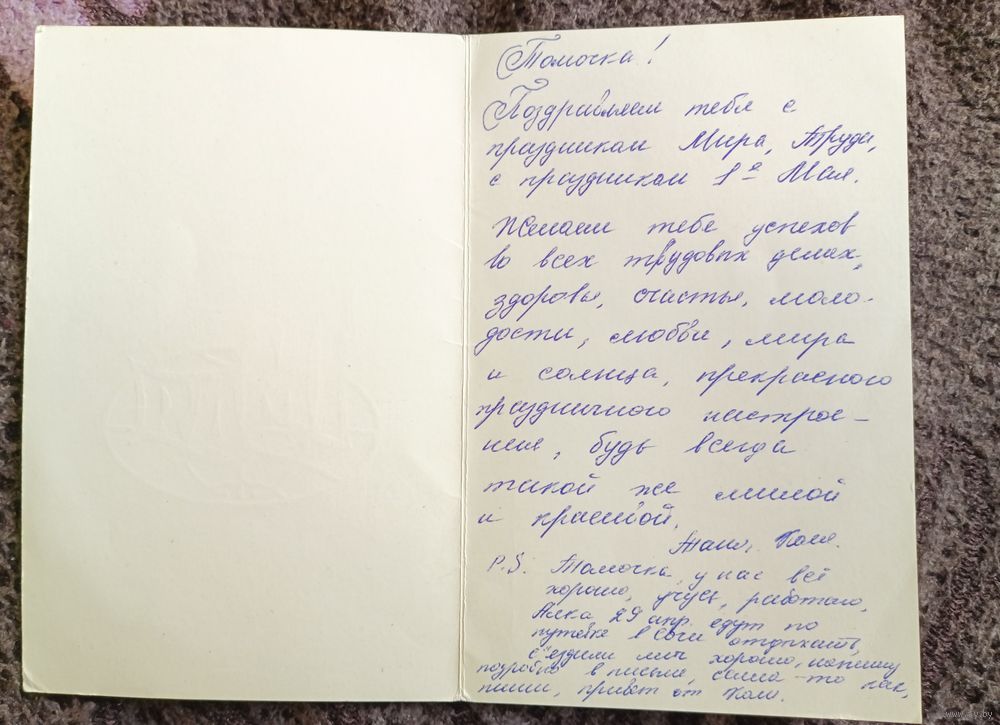 Томочка!
Поздравляем тебя с
праздником Мира, Труда,
с праздником 1е Мая.
Желаем тебе успехов
во всех трудовых делах,
здоровья, счастья, моло-
дости, любви, мира
и солнца, прекрасного
праздничного настрое-
ния, будь всегда
такой же милой
и красивой.
Таня, Коля.
P.S. Томочка, у нас всё
хорошо, учусь, работаю,
29 апр. едут по
путёвке в Сочи отдыхать,
съездили мы хорошо, напишу
подробно в письме, сама-то как,
пиши, привет от Коли.